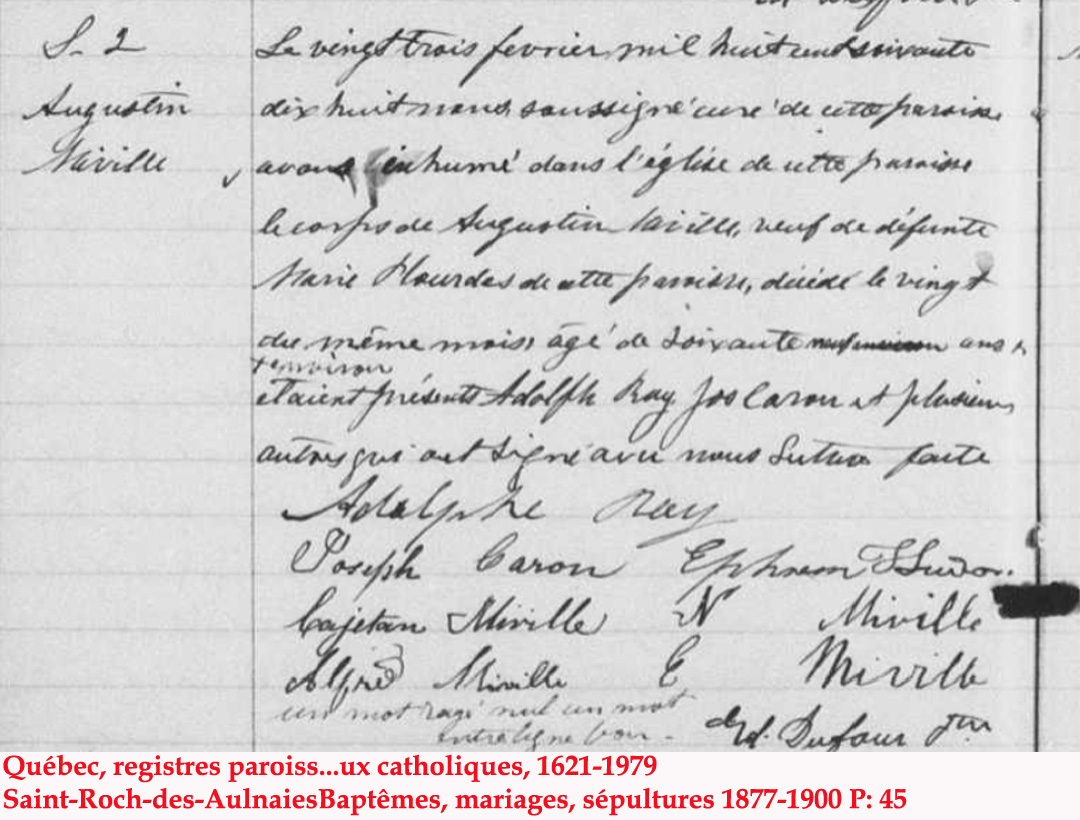 S. 2
Augustin
Miville
Le vingt trois fevrier mil huit cent soixante
dix huit nous soussigné curé de cette paroisse
avons inhumé dans l'église de cette paroisse
le corps de Augustin Miville, veuf de défunte
Marie Plourdes de cette paroisse, décédé le vingt
du même mois, âgé de soixante ans
+ environ
étaient présents Adolph Ray Jos Caron et plusieurs
autres qui ont signé avec nous Lecture faite
Adolphe Ray
Joseph Caron Ephrem
Cajetan Miville N Miville
Alfred Miville E Miville
un mot rayé nul un mot
entreligne bon.
Dufour Ptre
Québec, registres paroiss...ux catholiques, 1621-1979
Saint-Roch-des-AulnaiesBaptêmes, mariages, sépultures 1877-1900 P: 45